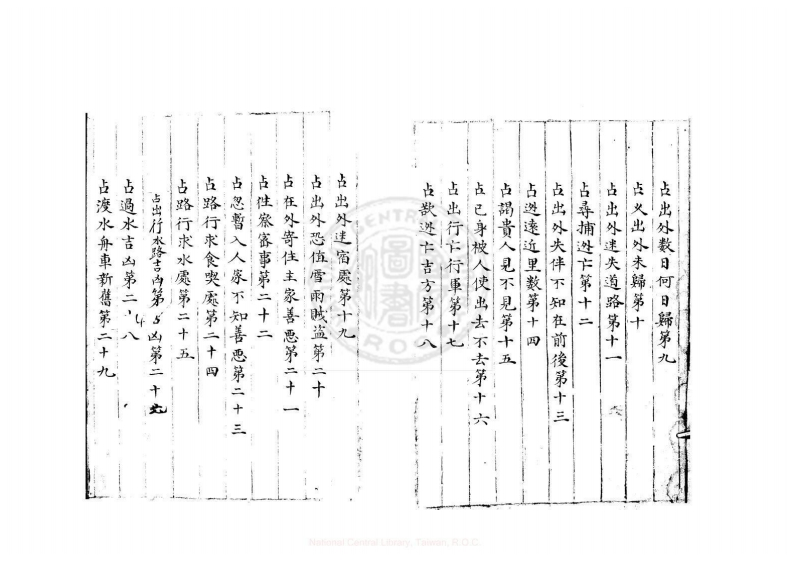 占出外數日何日歸第九
占义出外未歸第十
占出外迷失道路第十一
占尋捕迯亡第十二
占出外失伴不知在前後第十三
占迯遠近里数第十四
占謁貴人見不見第十五
占已身被人使出去不去第十六
占出行亡行軍第十七
占欲迯亡吉方第十八
占出外迷宿處第十九
占出外恐值雪雨賊盗第二十
占在外寄住主家善悪第二十一
占徃察審事第二十二
占忽暫入人家不知善悪第二十三
占路行求食喫處第二十四
占路行求水處第二十五
占出行水路吉凶第 凶第二十
占過水吉凶第二 八
占渡水舟車新舊第二十九
National Central Library, Taiwan, R.O.C.